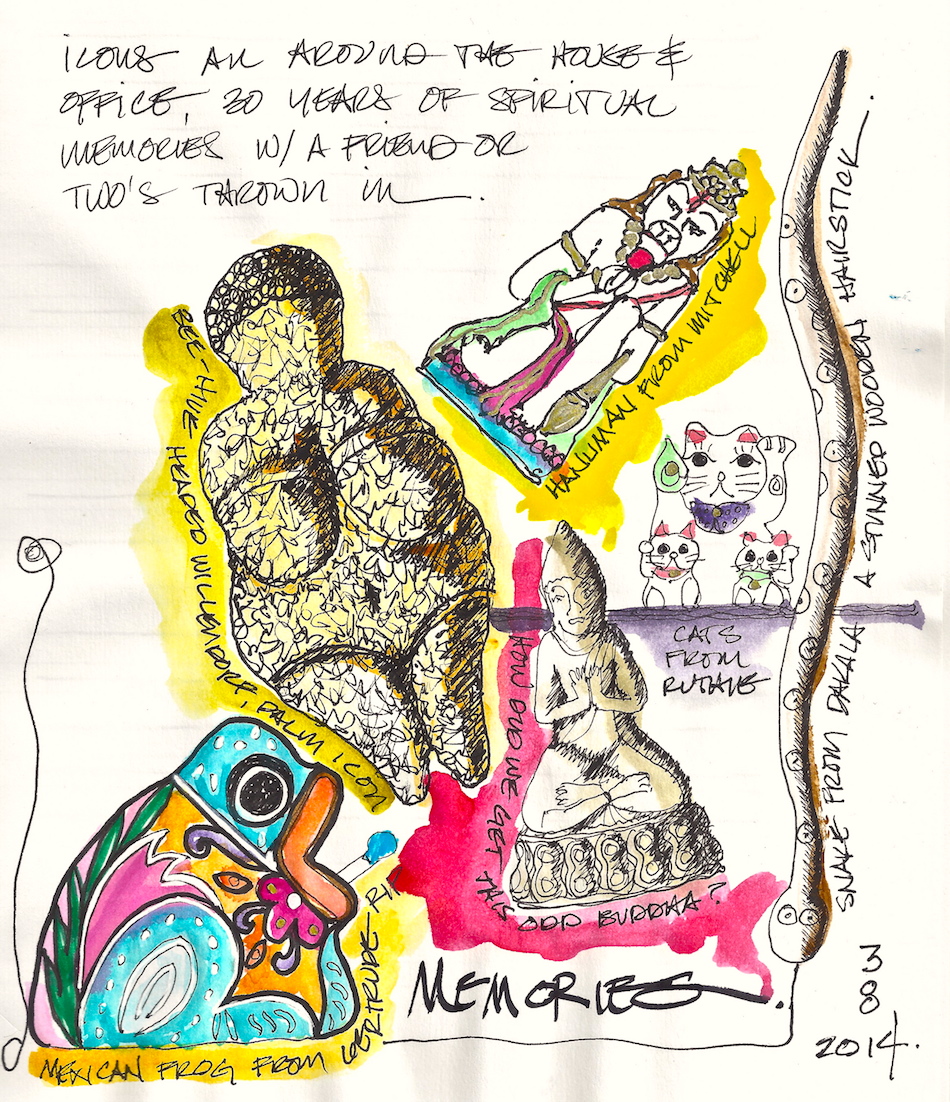 ICONS ALL AROUND THE HOUSE &
OFFICE, 20 YEARS OF SPIRITUAL
MEMORIES W/ A FRIEND OR
TWO'S THROWN IN.
BEE-HIVE HEADED WILLENDORF, PALM ICON
HANUMAN FROM MITCHELL
CATS
FROM
RUTHIE
SNAKE FROM DAKALA A STUNNED WOODEN HAIRSTICK.
HOW DID WE GET THIS ODD BUDDHA?
MEXICAN FROG FROM GERTRUDE-RI
MEMORIES.
3
8
2014.